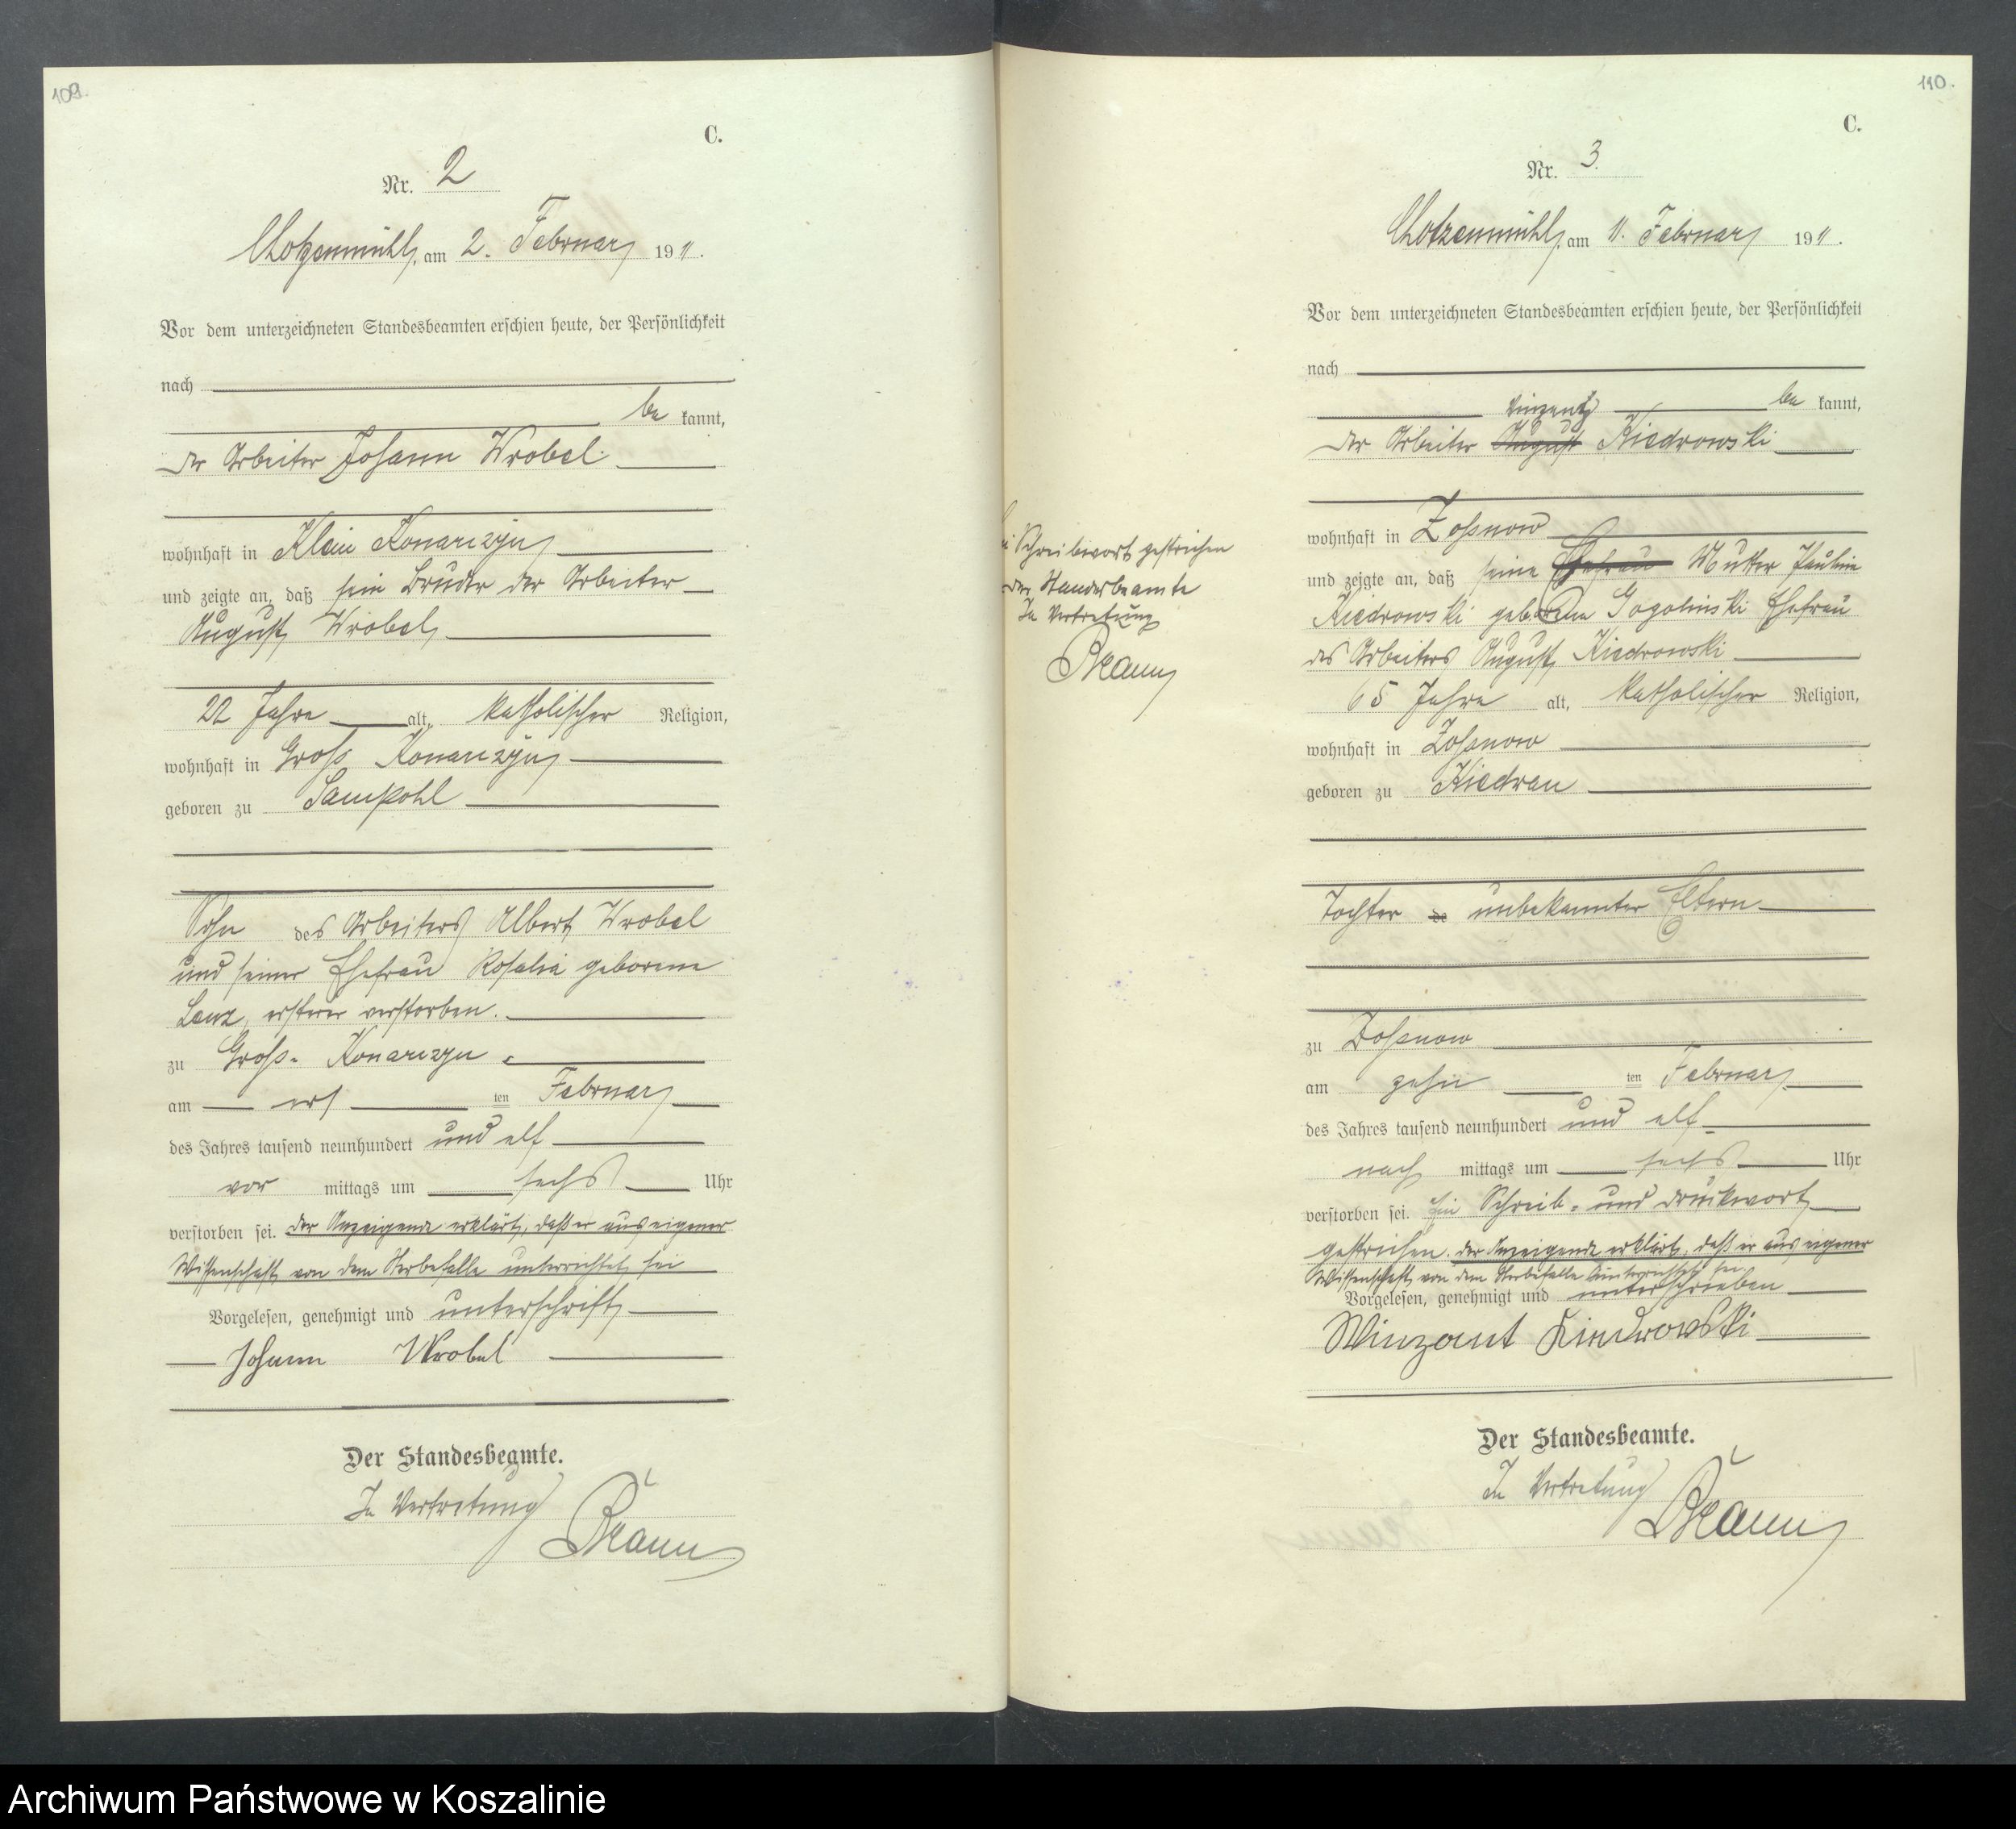 109.
C.
Nr. 2
Chotzenmühl, am 2. Februar 1911.
Vor dem unterzeichneten Standesbeamten erschien heute, der Persönlichkeit
nach
be kannt,
der Arbeiter Johann Wrobel
wohnhaft in Klein Konarczyn
und zeigte an, daß sein Bruder der Arbeiter
August Wrobel,
22 Jahre alt, katholischer Religion,
wohnhaft in Groß Konarczyn
geboren zu Sampohl
Sohn des Arbeiters Albert Wrobel
und seiner Ehefrau Rosalia geborene
Lenz, ersterer verstorben.
zu Groß-Konarczyn
am ers ten Februar
des Jahres tausend neunhundert und elf
vor mittags um sechs Uhr
verstorben sei. Der Anzeigende erklärt, daß er aus eigener
Wissenschaft von dem Sterbefalle unterrichtet sei
Vorgelesen, genehmigt und unterschrift
Johann Wrobel
Der Standesbeamte.
In Vertretung
110.
C.
Nr. 3.
Chotzenmühl, am 11. Februar 1911.
Vor dem unterzeichneten Standesbeamten erschien heute, der Persönlichkeit
nach
be kannt,
Vinzent
der Arbeiter August Kiedrowski
wohnhaft in Zoßnow
und zeigte an, daß seine Ehefrau Mutter Pauline
Kiedrowski geborene Gogolinski Ehefrau
des Arbeiters August Kiedrowski
65 Jahre alt, katholischer Religion,
wohnhaft in Zoßnow
geboren zu Kiedrau
Tochter de unbekannter Eltern
zu Zoßnow
am zehn ten Februar
des Jahres tausend neunhundert und elf
nach mittags um sechs Uhr
verstorben sei. Ein Schreib- und Druckwort
gestrichen. Der Anzeigende erklärt, daß er aus eigener
Wissenschaft von dem Sterbefalle unterrichtet sei.
Vorgelesen, genehmigt und unterschrieben
Winzant Kiedrowski
Der Standesbeamte.
In Vertretung
Schreibwort gestrichen
Der Standesbeamte
In Vertretung
Archiwum Państwowe w Koszalinie